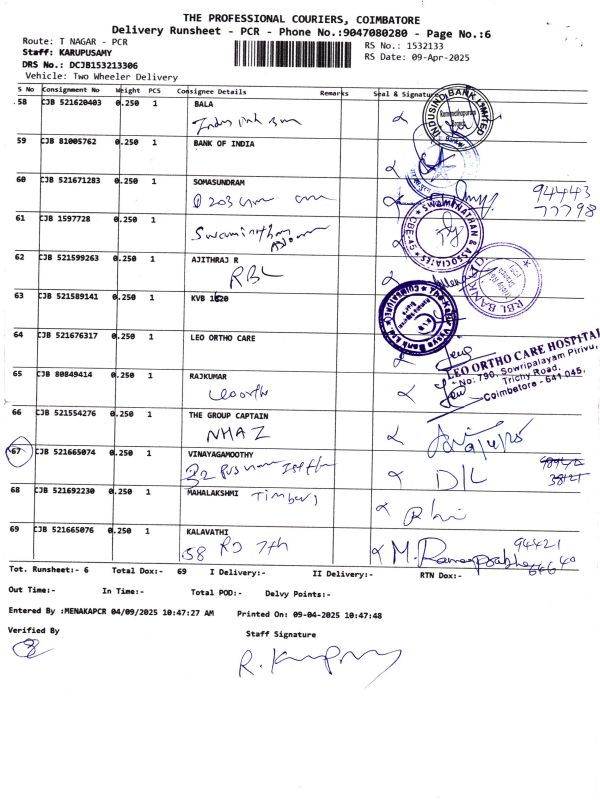 THE PROFESSIONAL COURIERS, COIMBATORE
Delivery Runsheet - PCR - Phone No.:9047080280 - Page No.:6
Route: T NAGAR - PCR
RS No.: 1532133
Staff: KARUPUSAMY
RS Date: 09-Apr-2025
DRS No.: DCJB153213306
Vehicle: Two Wheeler Delivery
S No Consignment No Weight PCS Consignee Details Remarks Seal & Signature
58 CJB 521620403 0.250 1 BALA
INDUSIND BANK LIMITED
Ramanathapuram Branch
59 CJB 81005762 0.250 1 BANK OF INDIA
60 CJB 521671283 0.250 1 SOMASUNDRAM
@ 203
94443
77798
61 CJB 1597728 0.250 1
Swaminathan
SWAMINATHAN & ASSOCIATES * CBE-45 *
62 CJB 521599263 0.250 1 AJITHRAJ R
RBL
RBL BANK LTD
63 CJB 521589141 0.250 1 KVB 1620
The Karur Vysya Bank Ltd
COIMBATORE
64 CJB 521676317 0.250 1 LEO ORTHO CARE
LEO ORTHO CARE HOSPITAL
No: 790, Sowripalayam Pirivu,
Trichy Road,
Coimbatore - 641 045.
65 CJB 80849414 0.250 1 RAJKUMAR
66 CJB 521554276 0.250 1 THE GROUP CAPTAIN
NHAZ
67 CJB 521665074 0.250 1 VINAYAGAMOORTHY
32
D/L
68 CJB 521692230 0.250 1 MAHALAKSHMI
Timbers
69 CJB 521665076 0.250 1 KALAVATHI
58 RD 7th
94421
64640
Tot. Runsheet:- 6 Total Dox:- 69 I Delivery:- II Delivery:- RTN Dox:-
Out Time:- In Time:- Total POD:- Delvy Points:-
Entered By :MENAKAPCR 04/09/2025 10:47:27 AM Printed On: 09-04-2025 10:47:48
Verified By Staff Signature